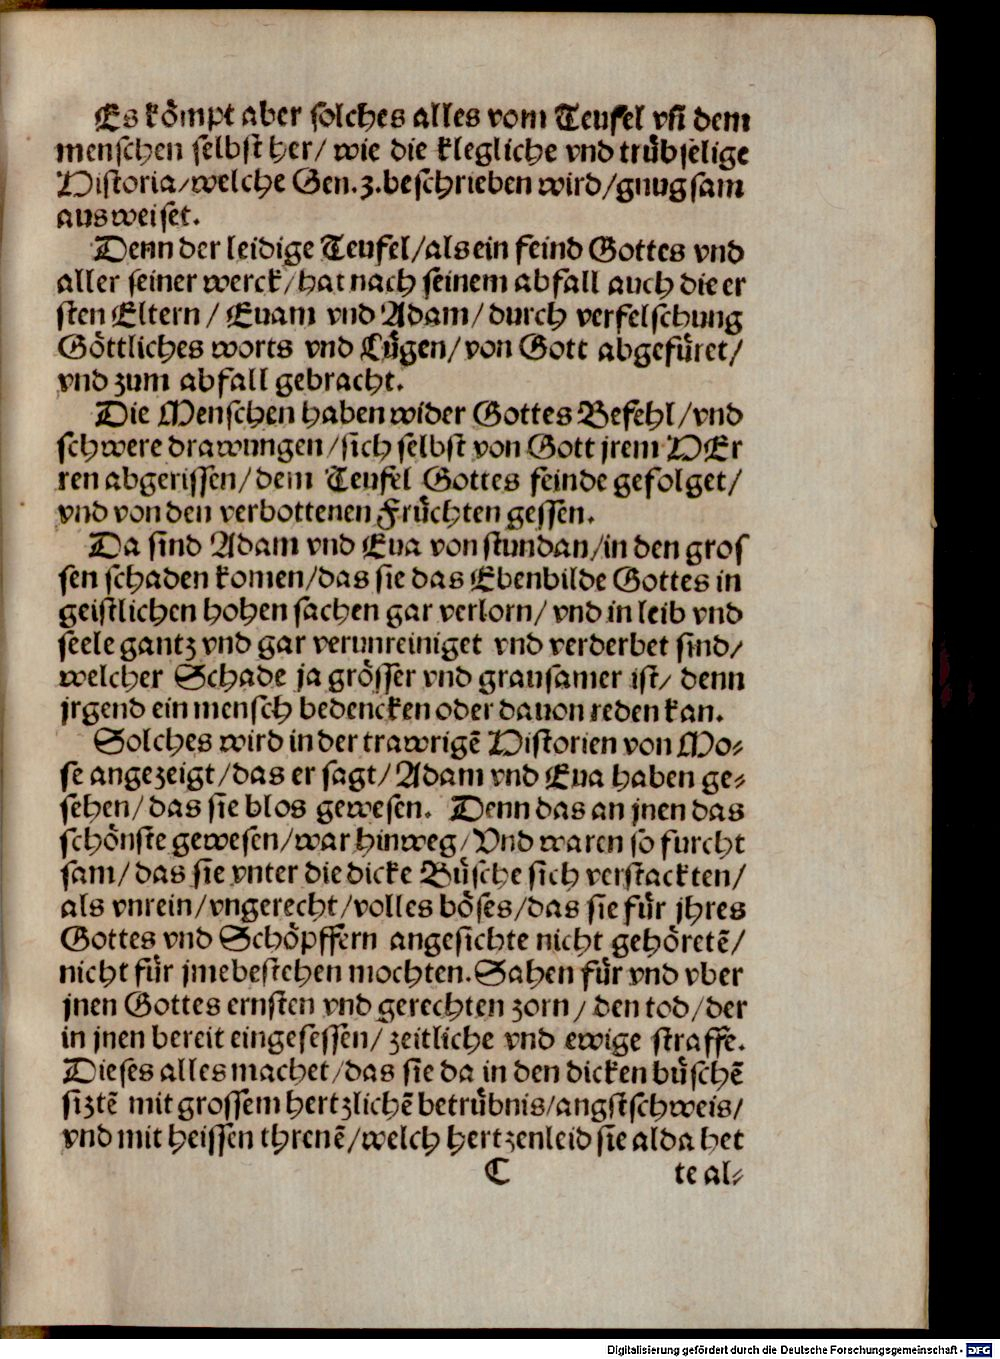 Es kömpt aber solches alles vom Teufel vñ dem
menschen selbst her/ wie die klegliche vnd trübselige
Historia/welche Gen. 3. beschrieben wird/gnugsam
ausweiset.
Denn der leidige Teufel/als ein feind Gottes vnd
aller seiner werck/hat nach seinem abfall auch die er
sten Eltern/ Euam vnd Adam/durch verfelschung
Göttliches worts vnd Lügen/von Gott abgefüret/
vnd zum abfall gebracht.
Die Menschen haben wider Gottes Befehl/vnd
schwere drawungen/sich selbst von Gott jrem HEr
ren abgerissen/dem Teufel Gottes feinde gefolget/
vnd von den verbottenen Früchten gessen.
Da sind Adam vnd Eua von stundan/in den gros
sen schaden komen/das sie das Ebenbilde Gottes in
geistlichen hohen sachen gar verlorn/ vnd in leib vnd
seele gantz vnd gar verunreiniget vnd verderbet sind/
welcher Schade ja grösser vnd grausamer ist/ denn
jrgend ein mensch bedencken oder dauon reden kan.
Solches wird in der trawrigẽ Historien von Mo-
se angezeigt/das er sagt/Adam vnd Eua haben ge-
sehen/das sie blos gewesen. Denn das an jnen das
schönste gewesen/war hinweg/Vnd waren so furcht
sam/das sie vnter die dicke Büsche sich verstackten/
als vnrein/vngerecht/volles böses/das sie für jhres
Gottes vnd Schöpffern angesichte nicht gehöretẽ/
nicht für jme bestehen mochten. Sahen für vnd vber
jnen Gottes ernsten vnd gerechten zorn/ den tod/der
in jnen bereit eingesessen/ zeitliche vnd ewige straffe.
Dieses alles machet/das sie da in den dicken büschẽ
siztẽ mit grossem hertzlichẽ betrübnis/angstschweis/
vnd mit heissen threnẽ/welch hertzenleid sie alda het
C te al-
Digitalisierung gefördert durch die Deutsche Forschungsgemeinschaft - DFG